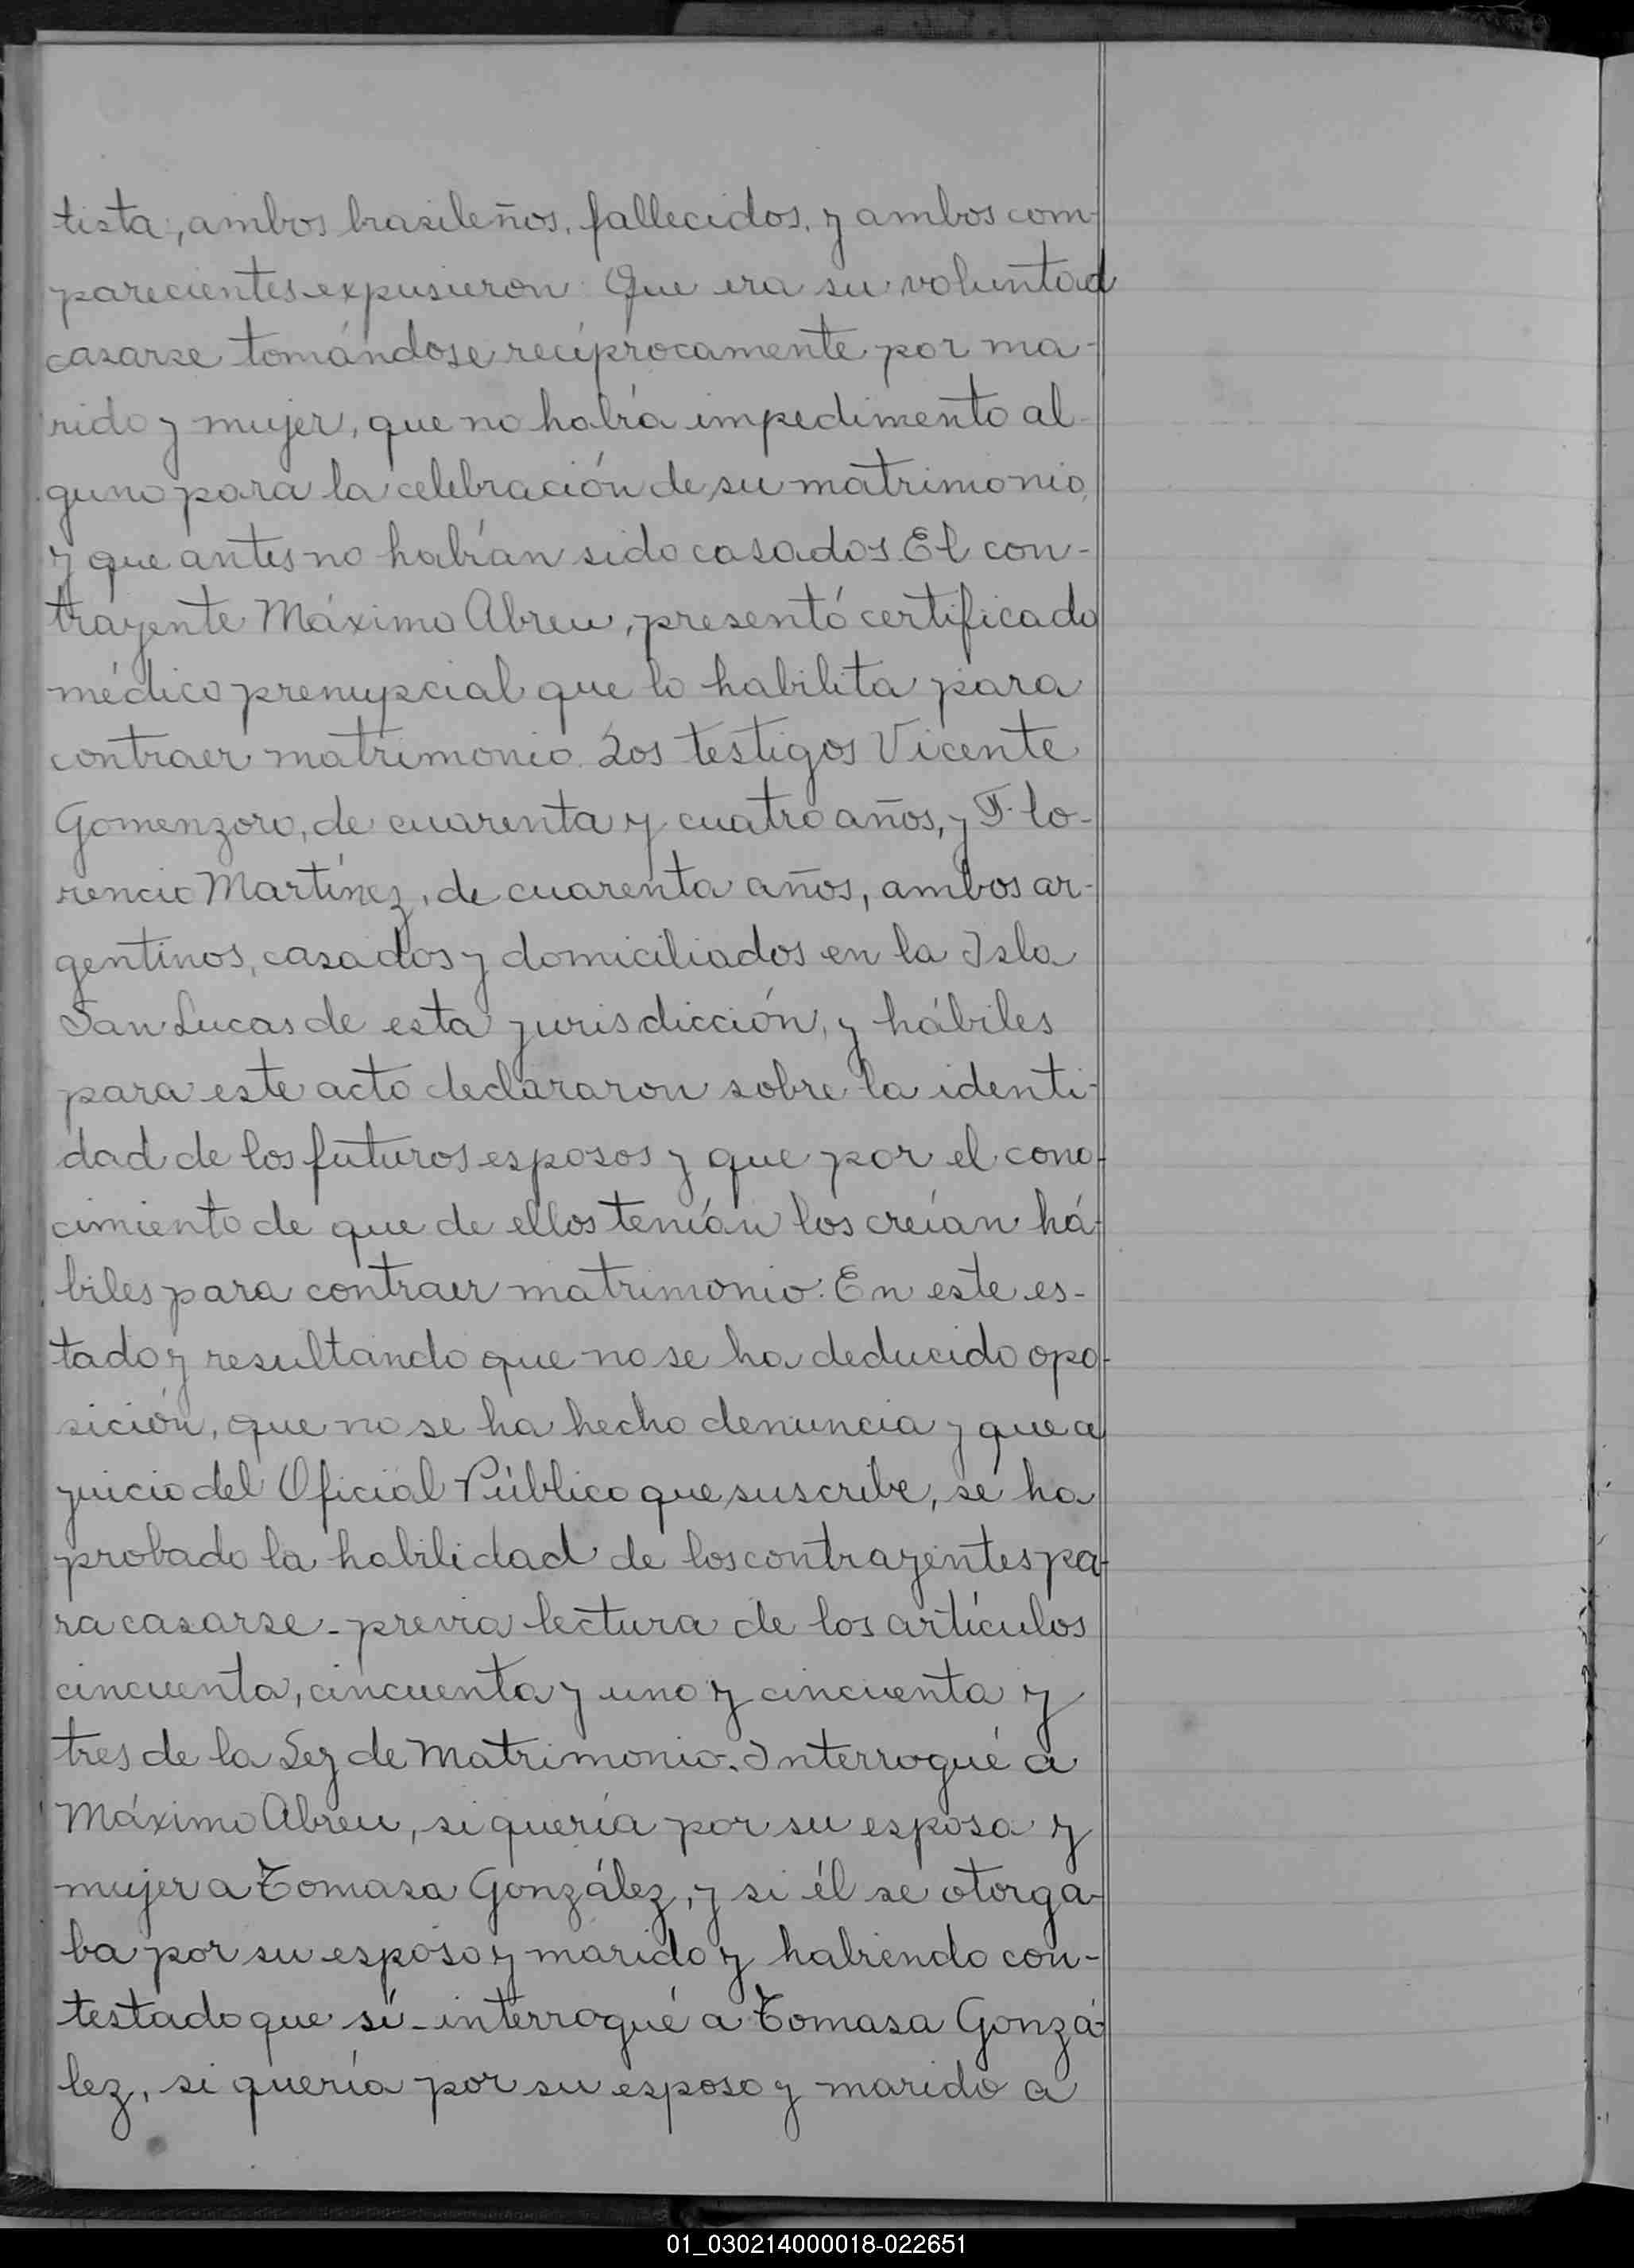 tista, ambos brasileños, fallecidos, y ambos com-
parecientes expusieron: Que era su voluntad
casarse tomándose recíprocamente por ma-
rido y mujer, que no había impedimento al-
guno para la celebración de su matrimonio,
y que antes no habían sido casados. El con-
trayente Máximo Abreu, presentó certificado
médico prenupcial que lo habilita para
contraer matrimonio. Los testigos Vicente
Gomenzoro, de cuarenta y cuatro años, y Flo-
rencio Martínez, de cuarenta años, ambos ar-
gentinos, casados y domiciliados en la Isla
San Lucas de esta jurisdicción, y hábiles
para este acto declararon sobre la identi-
dad de los futuros esposos y que por el cono-
cimiento de que de ellos tenían los creían há-
biles para contraer matrimonio. En este es-
tado y resultando que no se ha deducido opo-
sición, que no se ha hecho denuncia y que a
juicio del Oficial Público que suscribe, se ha
probado la habilidad de los contrayentes pa-
ra casarse - previa lectura de los artículos
cincuenta, cincuenta y uno y cincuenta y
tres de la Ley de Matrimonio. Interrogué a
Máximo Abreu, si quería por su esposa y
mujer a Tomasa González, y si él se otorga-
ba por su esposo y marido y habiendo con-
testado que sí - interrogué a Tomasa Gonzá-
lez, si quería por su esposo y marido a
01_030214000018-022651